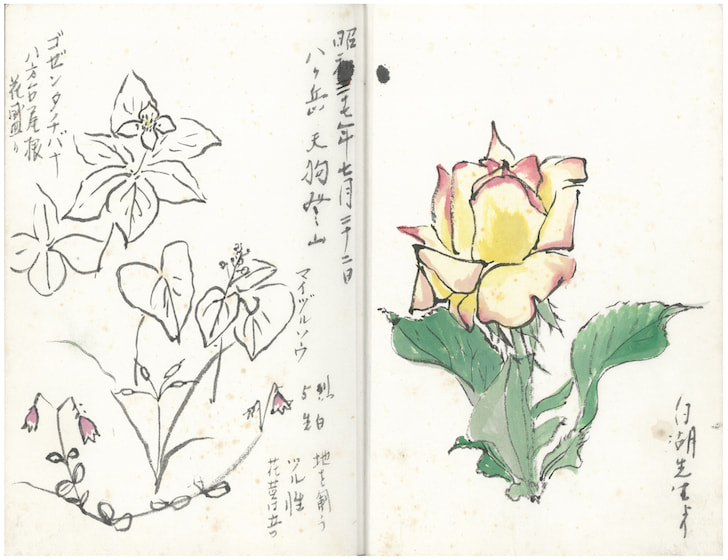 白湖先生
昭和三七年七月二十二日
八ヶ岳 天狗登山
マイヅルソウ
地を
ツル性
花茎は立つ
ゴゼンタチバナ
八方台尾根
花盛り